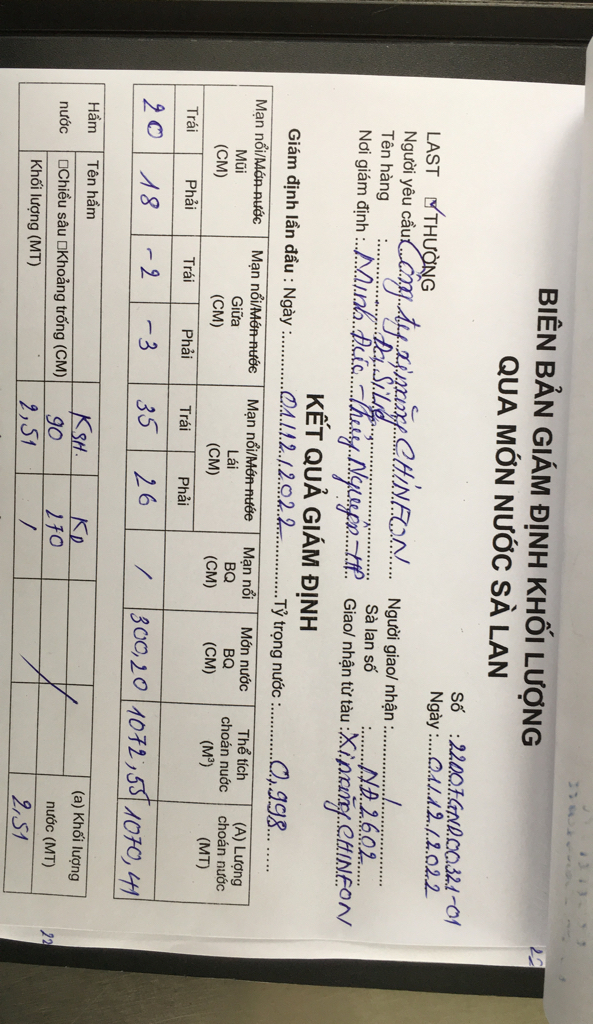 BIÊN BẢN GIÁM ĐỊNH KHỐI LƯỢNG
QUA MÓN NƯỚC SÀ LAN
Số : 22D07GND00321-01
Ngày : 01.12.2022
LAST ☑ THƯỜNG
Người yêu cầu: Công ty xi măng CHINFON Người giao/ nhận : /
Tên hàng : Đá Silic Sà lan số : NĐ2602
Nơi giám định : Minh Đức - Thủy Nguyên - HP Giao/ nhận từ tàu : Xi măng CHINFON
KẾT QUẢ GIÁM ĐỊNH
Giám định lần đầu : Ngày : 01.12.2022 Tỷ trọng nước : 0,998
Mạn nổi/Món nước Mũi (CM) Mạn nổi/Món nước Giữa (CM) Mạn nổi/Món nước Lái (CM) Mạn nổi BQ (CM) Món nước BQ (CM) Thể tích choán nước (M³) (A) Lượng choán nước (MT)
Trái Phải Trái Phải Trái Phải
20 18 -2 -3 35 26 / 300,20 1072,55 1070,41
Hầm nước Tên hầm KSH. KD (a) Khối lượng nước (MT)
□Chiều sâu □Khoảng trống (CM) 90 270
Khối lượng (MT) 2,51 / 2,51